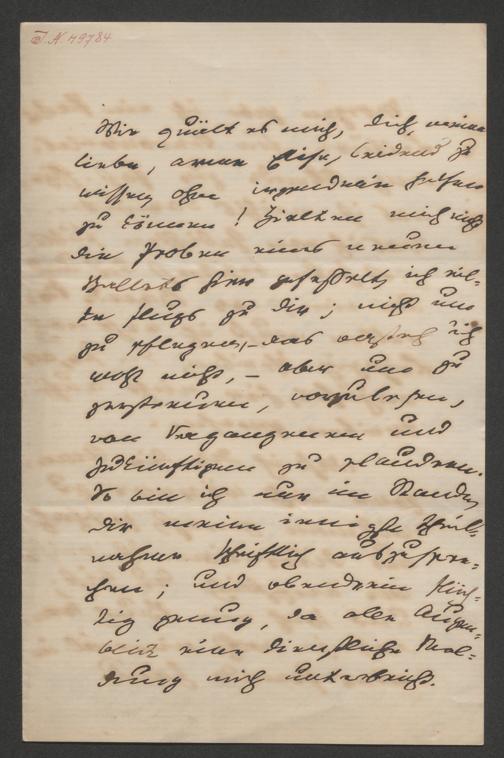 I.N. 49784
Wie quält es mich, dich, meine
liebe, arme Elise, leidend zu
wissen, ohne irgendwie helfen
zu können! Hielten mich nicht
die Proben eines neuen
Balletts hier gefesselt, ich eil-
te flugs zu dir; nicht um
zu pflegen, – das verstehe ich
wohl nicht, – aber um zu
zerstreuen, vorzulesen,
von Vergangenem und
Zukünftigem zu plaudern.
So bin ich nur im Stande,
dir meine innigste Theil-
nahme schriftlich auszuspre-
chen; und obendrein flüch-
tig genug, da alle Augen-
blick eine dienstliche Mel-
dung mich unterbricht.